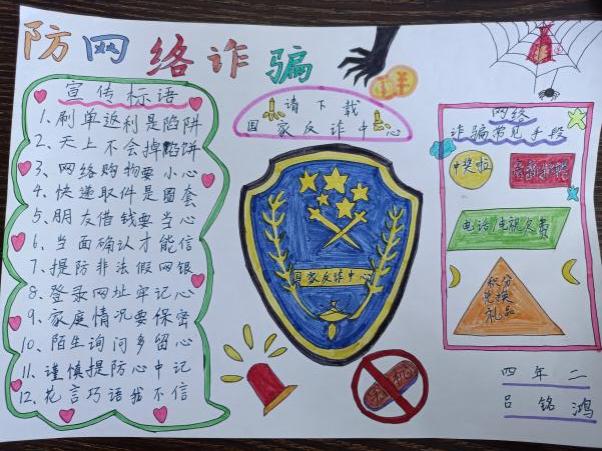 防网络诈骗
宣传标语
1、刷单返利是陷阱
2、天上不会掉馅饼
3、网络购物要小心
4、快递取件是圈套
5、朋友借钱要当心
6、当面确认才能信
7、提防非法假网银
8、登录网址牢记心
9、家庭情况要保密
10、陌生询问多留心
11、谨慎提防心中记
12、花言巧语我不信
请下载
国家反诈中心
国家反诈中心
网络
诈骗常见手段
中奖啦
高薪招聘
电话/电视欠费
积分
兑换
礼品
四年二
吕铭鸿